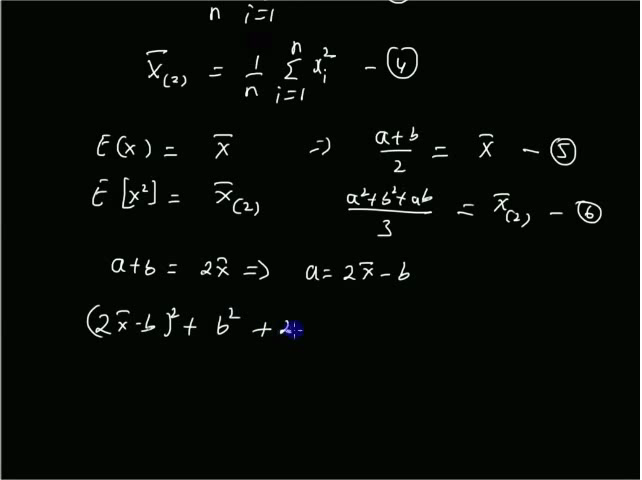 n i=1
x̄₍₂₎ = 1/n Σ_{i=1}^{n} xᵢ² – ④
E(x) = x̄ ⇒ (a+b)/2 = x̄ – ⑤
E[x²] = x̄₍₂₎ (a²+b²+ab)/3 = x̄₍₂₎ – ⑥
a+b = 2x̄ ⇒ a = 2x̄ – b
(2x̄ - b)² + b² + 2